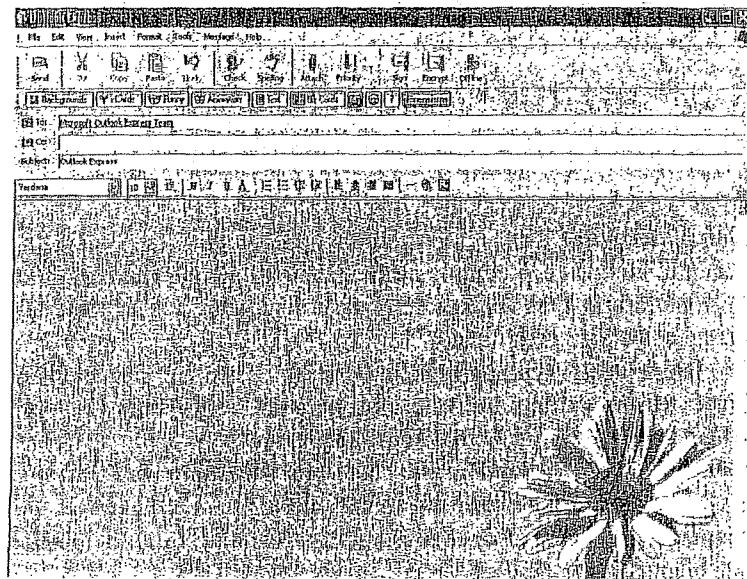 File Edit View Insert Format Tools Message Help
Send Cut Copy Paste Undo Check Spelling Attach Priority Sign Encrypt Offline
Backgrounds Animation Text
To: Microsoft Outlook Express Team
Cc:
Subject: Outlook Express
Verdana 10